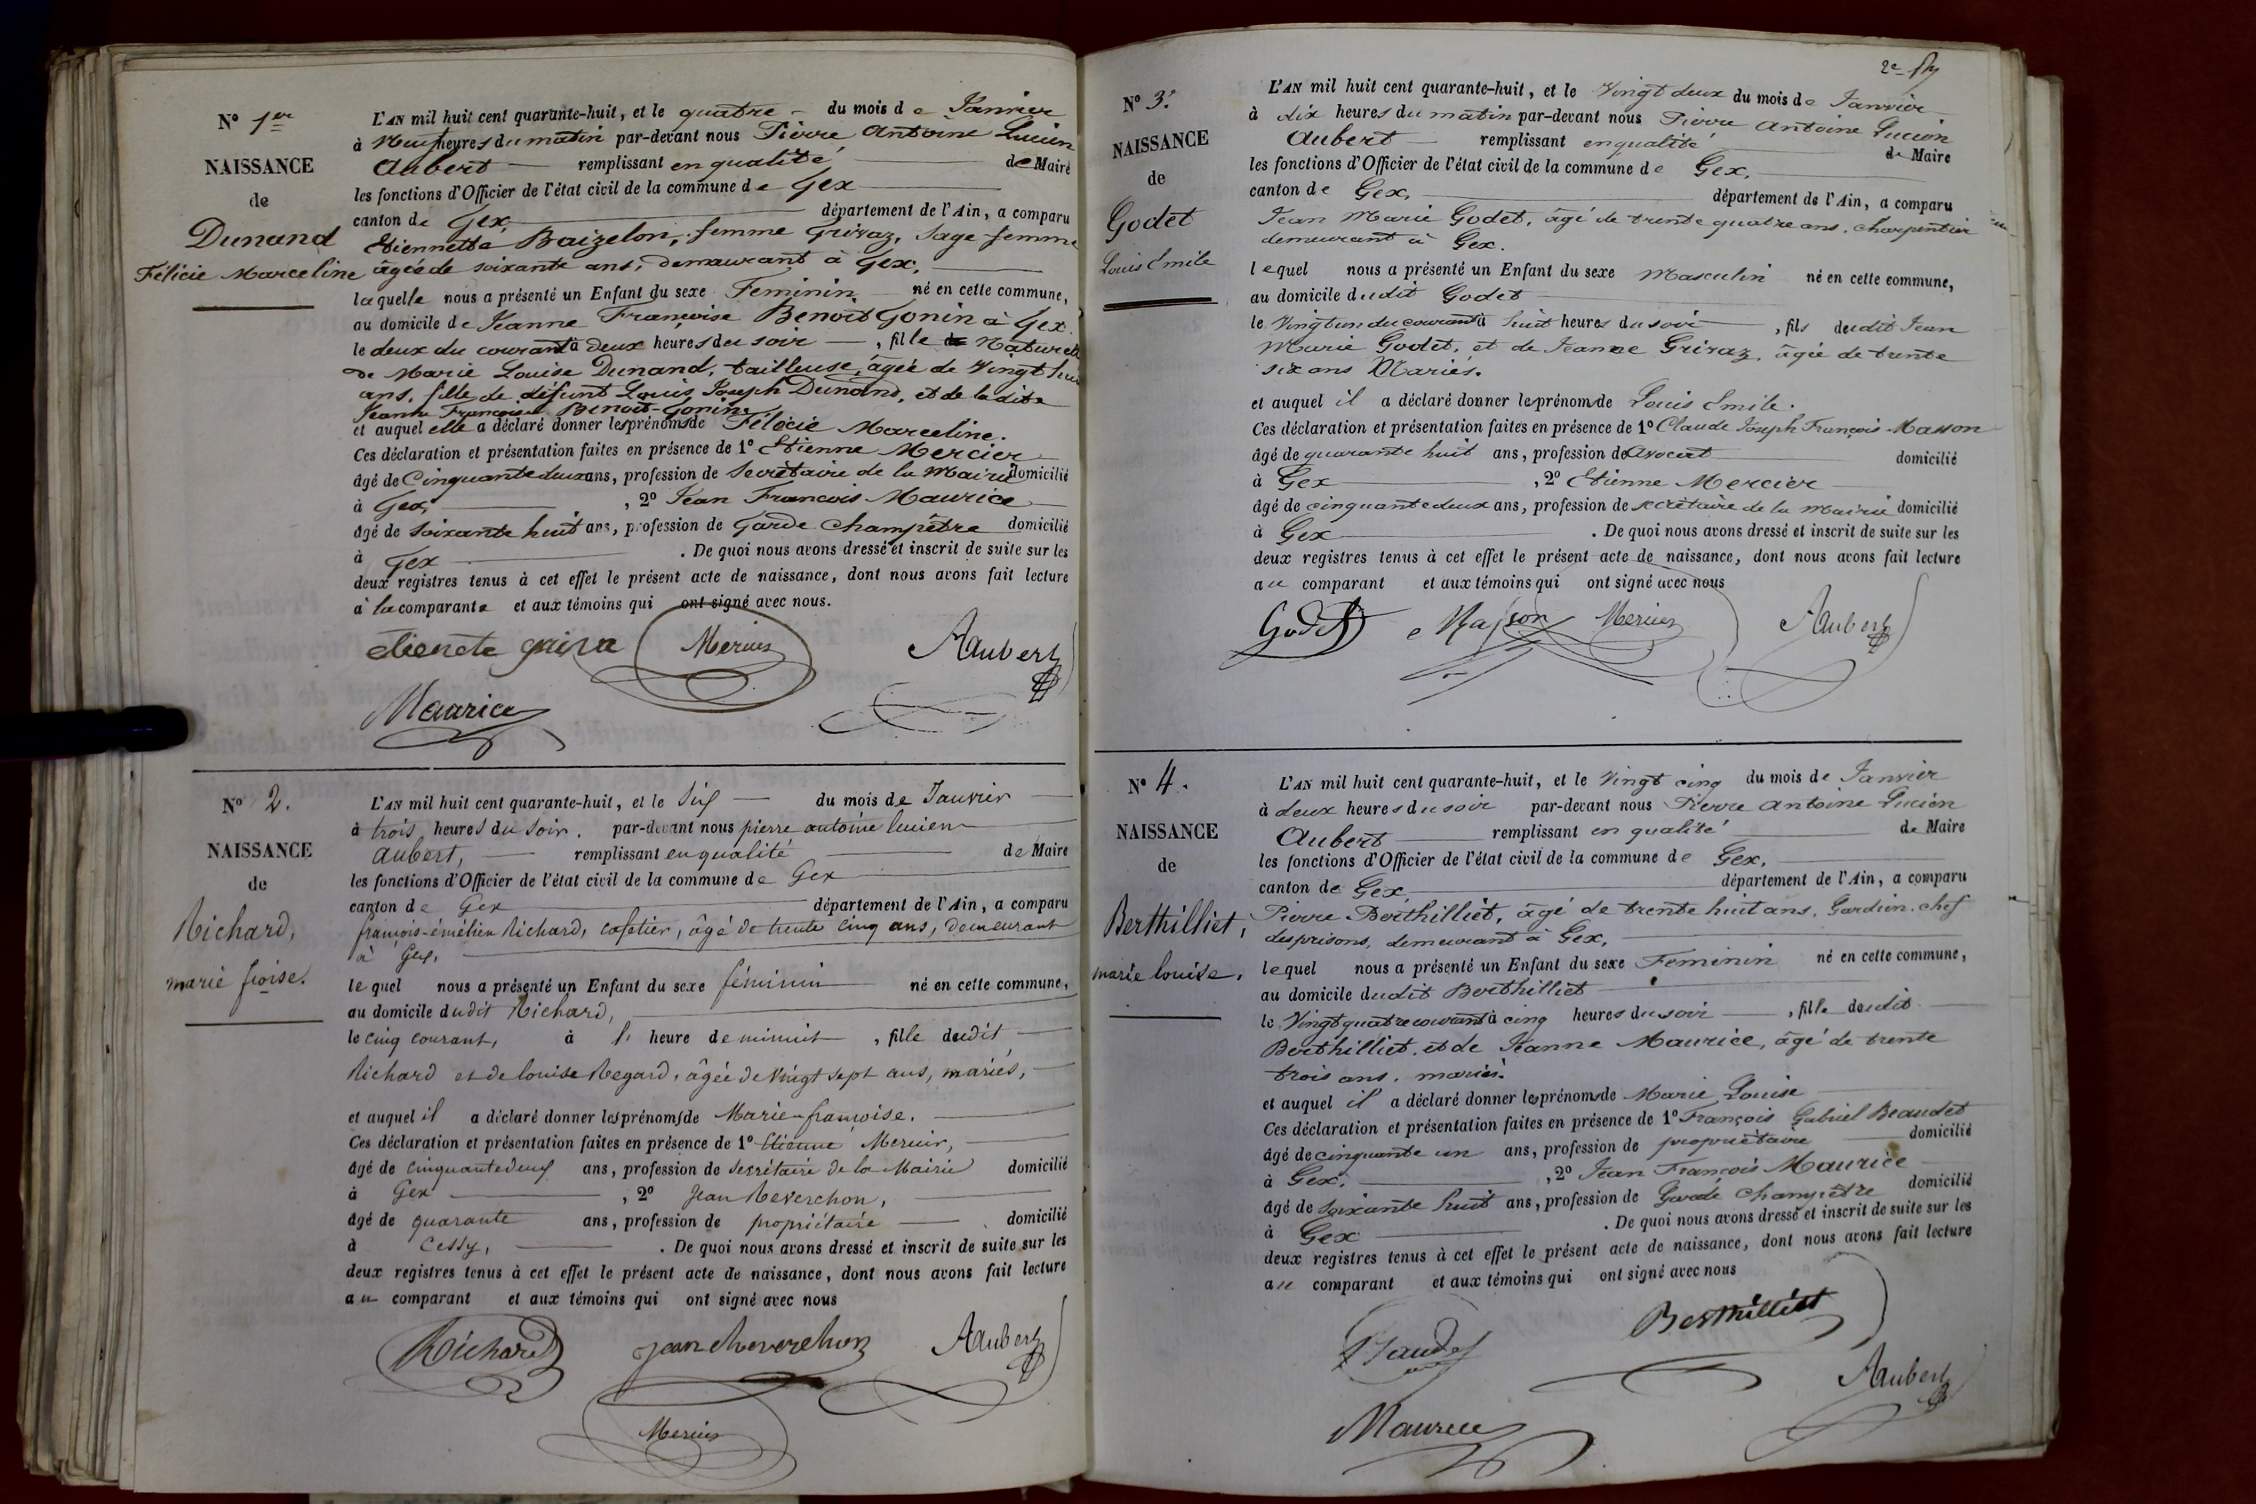 N° 1er
NAISSANCE
de
Dunand
Félicie Marceline
L'AN mil huit cent quarante-huit, et le quatre du mois de Janvier
à Neuf heures du matin par-devant nous Pierre Antoine Lucien
Aubert remplissant en qualité de Maire
les fonctions d'Officier de l'état civil de la commune de Gex
canton de Gex, département de l'Ain, a comparu
Etiennette Baizelon, femme Grivaz, Sage femme
âgée de soixante ans, demeurant à Gex,
laquelle nous a présenté un Enfant du sexe Feminin né en cette commune,
au domicile de Jeanne Françoise Benoit Gonin à Gex.
le deux du courant à deux heures du soir, fille Naturelle
de Marie Louise Dunand, tailleuse, âgée de Vingt huit
ans, fille de défunt Louis Joseph Dunand, et de ladite
Jeanne Françoise Benoit-Gonin.
et auquel elle a déclaré donner les prénoms de Félicie Marceline.
Ces déclaration et présentation faites en présence de 1° Etienne Mercier
âgé de Cinquante deux ans, profession de Secrétaire de la Mairie domicilié
à Gex, , 2° Jean François Maurice
âgé de soixante huit ans, profession de Garde champêtre domicilié
à Gex . De quoi nous avons dressé et inscrit de suite sur les
deux registres tenus à cet effet le présent acte de naissance, dont nous avons fait lecture
à la comparante et aux témoins qui ont signé avec nous.
etienete griva Mercier AAubert
Maurice
N° 2.
NAISSANCE
de
Richard,
marie froise.
L'AN mil huit cent quarante-huit, et le Six du mois de Janvier
à trois heures du soir. par-devant nous pierre antoine lucien
aubert, remplissant en qualité de Maire
les fonctions d'Officier de l'état civil de la commune de Gex
canton de Gex département de l'Ain, a comparu
françois-émélien Richard, cafetier, âgé de trente cinq ans, demeurant
à Gex,
lequel nous a présenté un Enfant du sexe féminin né en cette commune,
au domicile dudit Richard,
le cinq courant, à l' heure de minuit, fille dudit
Richard et de louise Regard, âgée de vingt sept ans, mariés,
et auquel il a déclaré donner les prénoms de Marie-françoise.
Ces déclaration et présentation faites en présence de 1° Etienne Mercier,
âgé de cinquante deux ans, profession de secrétaire de la Mairie domicilié
à Gex , 2° Jean Reverchon,
âgé de quarante ans, profession de propriétaire domicilié
à Cessy, . De quoi nous avons dressé et inscrit de suite sur les
deux registres tenus à cet effet le présent acte de naissance, dont nous avons fait lecture
au comparant et aux témoins qui ont signé avec nous
Richard jean Reverchon AAubert
Mercier
2e
N° 3.
NAISSANCE
de
Godet
Louis Emile
L'AN mil huit cent quarante-huit, et le Vingt deux du mois de Janvier
à dix heures du matin par-devant nous Pierre Antoine Lucien
Aubert remplissant en qualité de Maire
les fonctions d'Officier de l'état civil de la commune de Gex,
canton de Gex, département de l'Ain, a comparu
Jean Marie Godet, âgé de trente quatre ans, charpentier
demeurant à Gex.
lequel nous a présenté un Enfant du sexe Masculin né en cette commune,
au domicile dudit Godet
le Vingt un du courant à huit heures du soir, fils dudit Jean
Marie Godet, et de Jeanne Grivaz, âgée de trente
six ans Mariés.
et auquel il a déclaré donner les prénoms de Louis Emile.
Ces déclaration et présentation faites en présence de 1° Claude Joseph François Masson
âgé de quarante huit ans, profession de avocat domicilié
à Gex , 2° Etienne Mercier
âgé de cinquante deux ans, profession de secrétaire de la Mairie domicilié
à Gex . De quoi nous avons dressé et inscrit de suite sur les
deux registres tenus à cet effet le présent acte de naissance, dont nous avons fait lecture
au comparant et aux témoins qui ont signé avec nous
Godet Masson Mercier AAubert
N° 4.
NAISSANCE
de
Berthilliet,
marie louise.
L'AN mil huit cent quarante-huit, et le Vingt cinq du mois de Janvier
à deux heures du soir par-devant nous Pierre Antoine Lucien
Aubert remplissant en qualité de Maire
les fonctions d'Officier de l'état civil de la commune de Gex,
canton de Gex, département de l'Ain, a comparu
Pierre Berthilliet, âgé de trente huit ans, Gardien chef
des prisons, demeurant à Gex,
lequel nous a présenté un Enfant du sexe Feminin né en cette commune,
au domicile dudit Berthilliet
le Vingt quatre courant à cinq heures du soir, fille dudit
Berthilliet, et de Jeanne Maurice, âgé de trente
trois ans, mariés.
et auquel il a déclaré donner les prénoms de Marie Louise
Ces déclaration et présentation faites en présence de 1° François Gabriel Beaudet
âgé de cinquante un ans, profession de propriétaire domicilié
à Gex, , 2° Jean François Maurice
âgé de soixante huit ans, profession de Garde champêtre domicilié
à Gex . De quoi nous avons dressé et inscrit de suite sur les
deux registres tenus à cet effet le présent acte de naissance, dont nous avons fait lecture
au comparant et aux témoins qui ont signé avec nous
Berthilliet
AAubert
Maurice